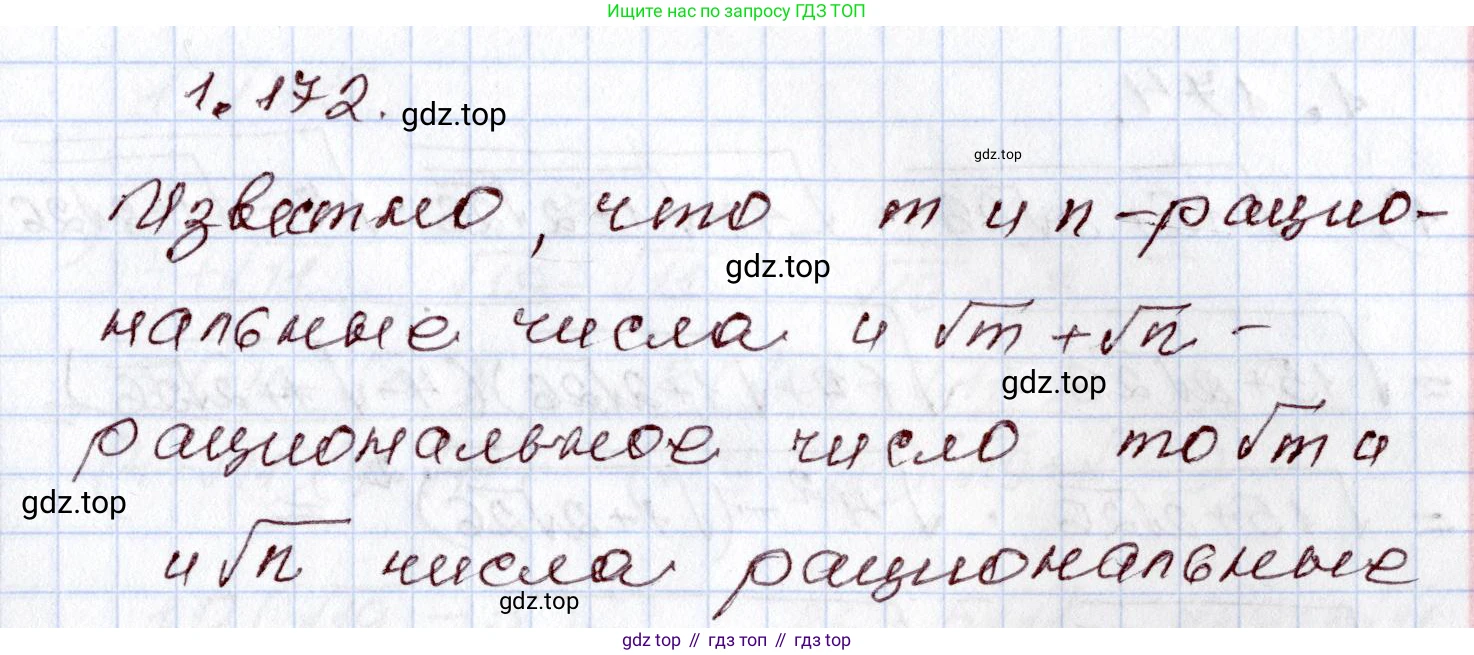 Ищите нас по запросу ГДЗ ТОП
1.172.
gdz.top
gdz.top
Известно, что m и n - рацио-
gdz.top
нальные числа и √m + √n -
gdz.top
рациональное число то √m и
gdz.top
и √n числа рациональные
gdz.top
gdz top // гдз топ // gdz top